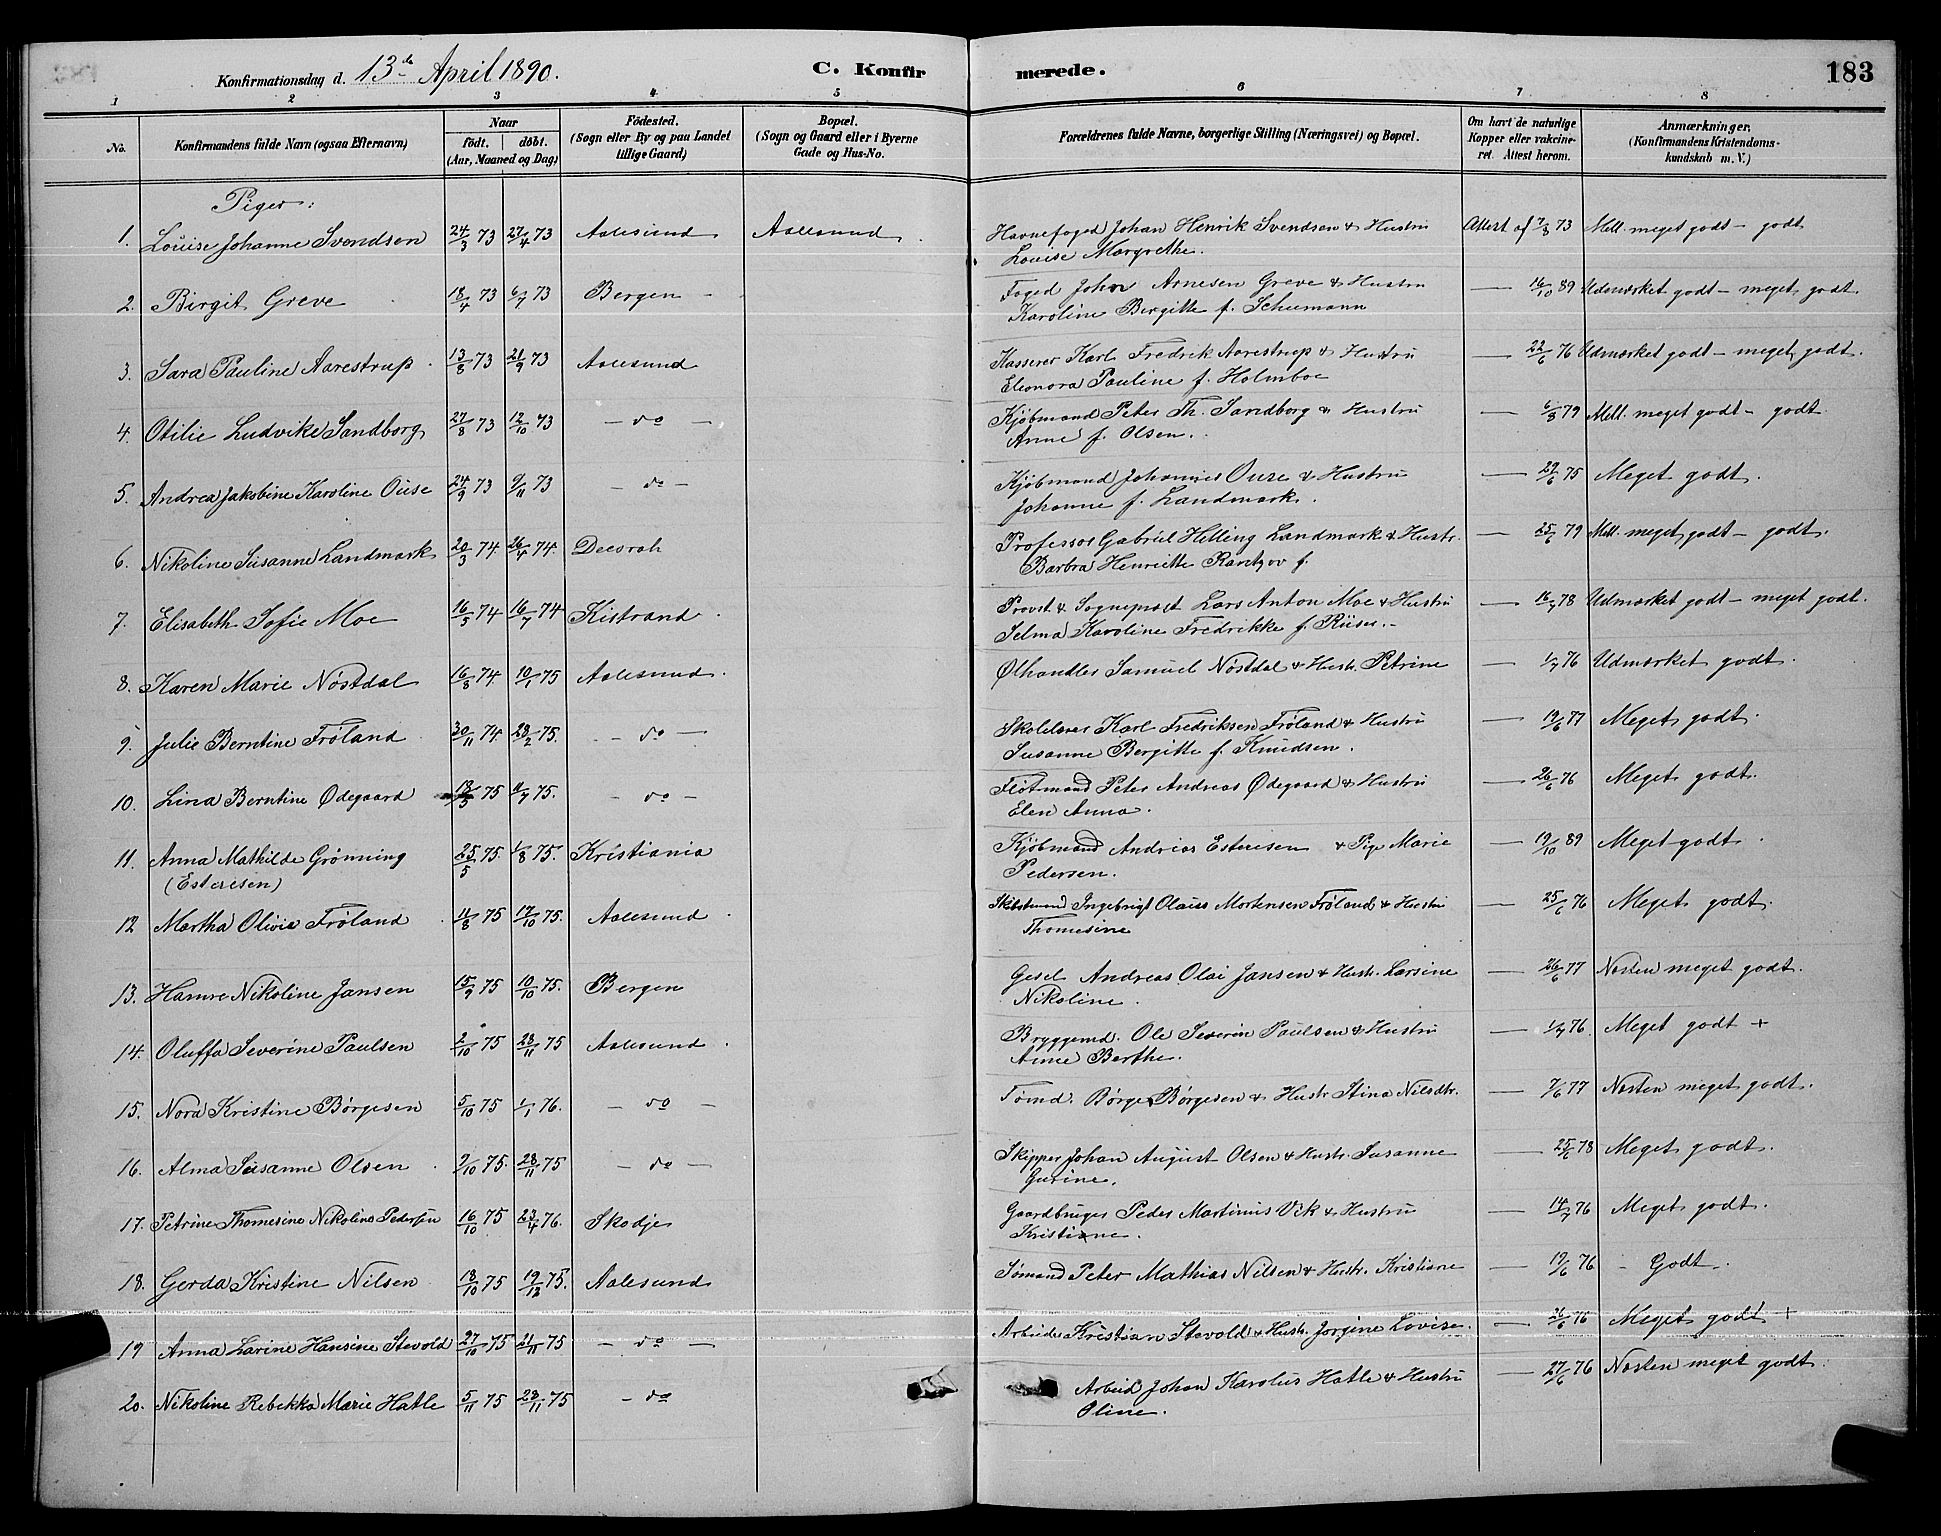 Konfirmationsdag d. 13de April 1890. C. Konfirmerede. 183
1 2 3 4 5 6 7 8
No. Konfirmandens fulde Navn (ogsaa Efternavn) Naar født. døbt. (Aar, Maaned og Dag) Fødested. (Sogn eller By og paa Landet tillige Gaard) Bopæl. (Sogn og Gaard eller i Byerne Gade og Hus-No. Forældrenes fulde Navne, borgerlige Stilling (Næringsvei) og Bopæl. Om havt de naturlige Kopper eller vakcineret. Attest herom. Anmærkninger, (Konfirmandens Kristendomskundskab m. V.)
Piger:
1. Louise Johanne Svendsen 24/3 73 27/4 73 Aalesund Aalesund. Havnefoged Johan Henrik Svendsen & Hustru Attest af 7/8 73 Mell. meget godt – godt
Louise Margrethe.
2. Birgit Greve 18/4 73 6/7 73 Bergen – Foged John Arnesen Greve & Hustru — 16/10 89 Udmærket godt – meget godt.
Karoline Birgitte f. Schumann
3. Sara Pauline Aarestrup. 13/8 73 21/9 73 Aalesund Kasserer Karl Fredrik Aarestrup & Hustru — 22/6 76 Udmærket godt – meget godt.
Eleonora Pauline f. Holmboe
4. Otilie Ludvike Sandborg 27/8 73 12/10 73 – do – Kjøbmand Peter Th. Sandborg & Hustru — 6/8 79 Mell. meget godt – godt
Anne f. Olsen.
5. Andrea Jakobine Karoline Ouse 24/9 73 9/11 73 – do – Kjøbmand Johannes Ouse & Hustru — 29/6 75 Meget godt.
Johanne f. Landmark.
6. Nikoline Susanne Landmark 20/3 74 26/4 74. Decorah Professor Gabriel Helling Landmark & Hustr. — 25/6 79 Mell. meget godt – godt.
Barbra Henriette Rantzov f.
7. Elisabeth Sofie Moe 16/5 74 16/7 74 Kistrand. Provst & Sogneprest Lars Anton Moe & Hustru — 78 Udmærket godt – meget godt.
Selma Karoline Fredrikke f. Riiser. –
8. Karen Marie Nøstdal 16/8 74 10/1 75 Aalesund. Ølhandler Samuel Nøstdal & Hustr. Petrine — 1/7 76 Udmærket godt.
9. Julie Berntine Frøland 30/11 74 28/2 75. – do – Skolelærer Karl Fredriksen Frøland & Hustru — 19/6 77 Meget godt.
Susanne Bergitte f. Knudsen.
10. Lina Berntine Ødegaard 13/5 75 4/7 75. – do – Fløtmand Peter Andreas Ødegaard & Hustru — 26/6 76 Meget godt.
Elen Anna.
11. Anna Mathilde Grønning 25/5 75. 1/8 75. Kristiania Kjøbmand Andrias Esterisen & Pige Marie — 19/10 89 Meget godt.
(Esterisen) Pedersen.
12 Martha Olivie Frøland. 11/8 75 17/10 75. Aalesund. Skibstmand Ingebrigt Olaus Mortensen Frøland & Hustru — 25/6 76 Meget godt.
Thomesine
13. Hamre Nikoline Jansen 15/9 75 10/10 75. Bergen Gesel Andreas Olai Jansen & Hustr. Larsine — 26/6 77 Næsten meget godt.
Nikoline.
14. Oluffa Severine Paulsen 2/10 75 28/11 75 Aalesund. Bryggemd. Ole Severin Paulsen & Hustru — 1/7 76. Meget godt +
Anne Berthe.
15. Nora Kristine Børgesen 5/10 75 1/1 76. – do – Tømd. Børge Børgesen & Hustr. Stina Nilsdtr. — 7/6 77 Næsten meget godt.
16. Alma Susanne Olsen. 7/10 75. 28/11 75 – do – Skipper Johan August Olsen & Hustr. Susanne — 25/6 78 Meget godt.
Gurine.
17. Petrine Thomesine Nikoline Pedersen 16/10 75 23/4 76. Skodje Gaardbruger Peder Martinus Vik & Hustru — 14/7 76 Meget godt.
Kristiane.
18. Gerda Kristine Nilsen 18/10 75 19/12 75. Aalesund Sømand Peter Mathias Nilsen & Hustr. Kristiane — 19/6 76 – Godt.
19 Anna Larine Hansine Stevold 27/10 75 21/11 75 – do – Arbeider Kristian Stevold & Hustr. Jorgine Lovise. — 26/6 76 Meget godt +
20. Nikoline Rebekka Marie Hatle 5/11 75 28/11 75 – do Arbeid. Johan Karolus Hatle & Hustru — 27/6 76 Næsten meget godt.
Oline.